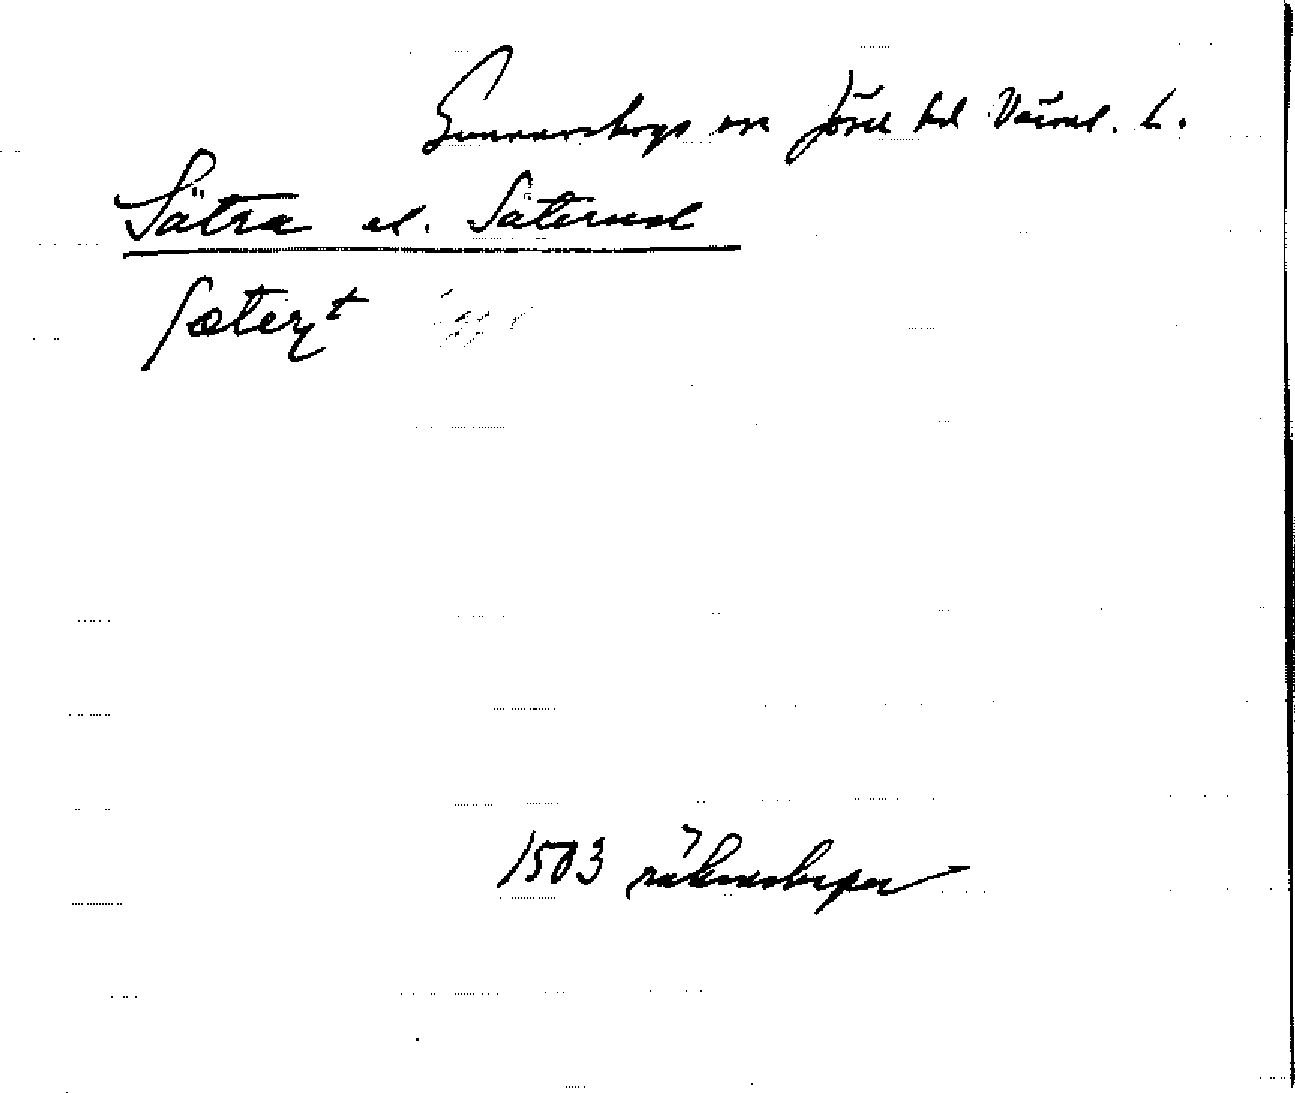 Gunnarskogs sn Jösse hd Värml. l.
Sätra el. Säterud
sæter
1503 räkensk